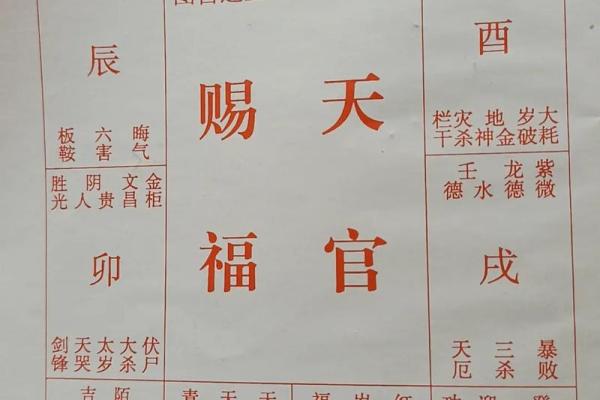 天官
赐福
酉
大耗
岁破
地金神
灾杀
栏干
紫微
龙德
壬水德
戌
暴败
三杀
天厄
辰
晦气
六害
板鞍
金柜
文昌
阴贵人
胜光
卯
伏尸
大杀
太岁
天哭
剑锋
陌
吉